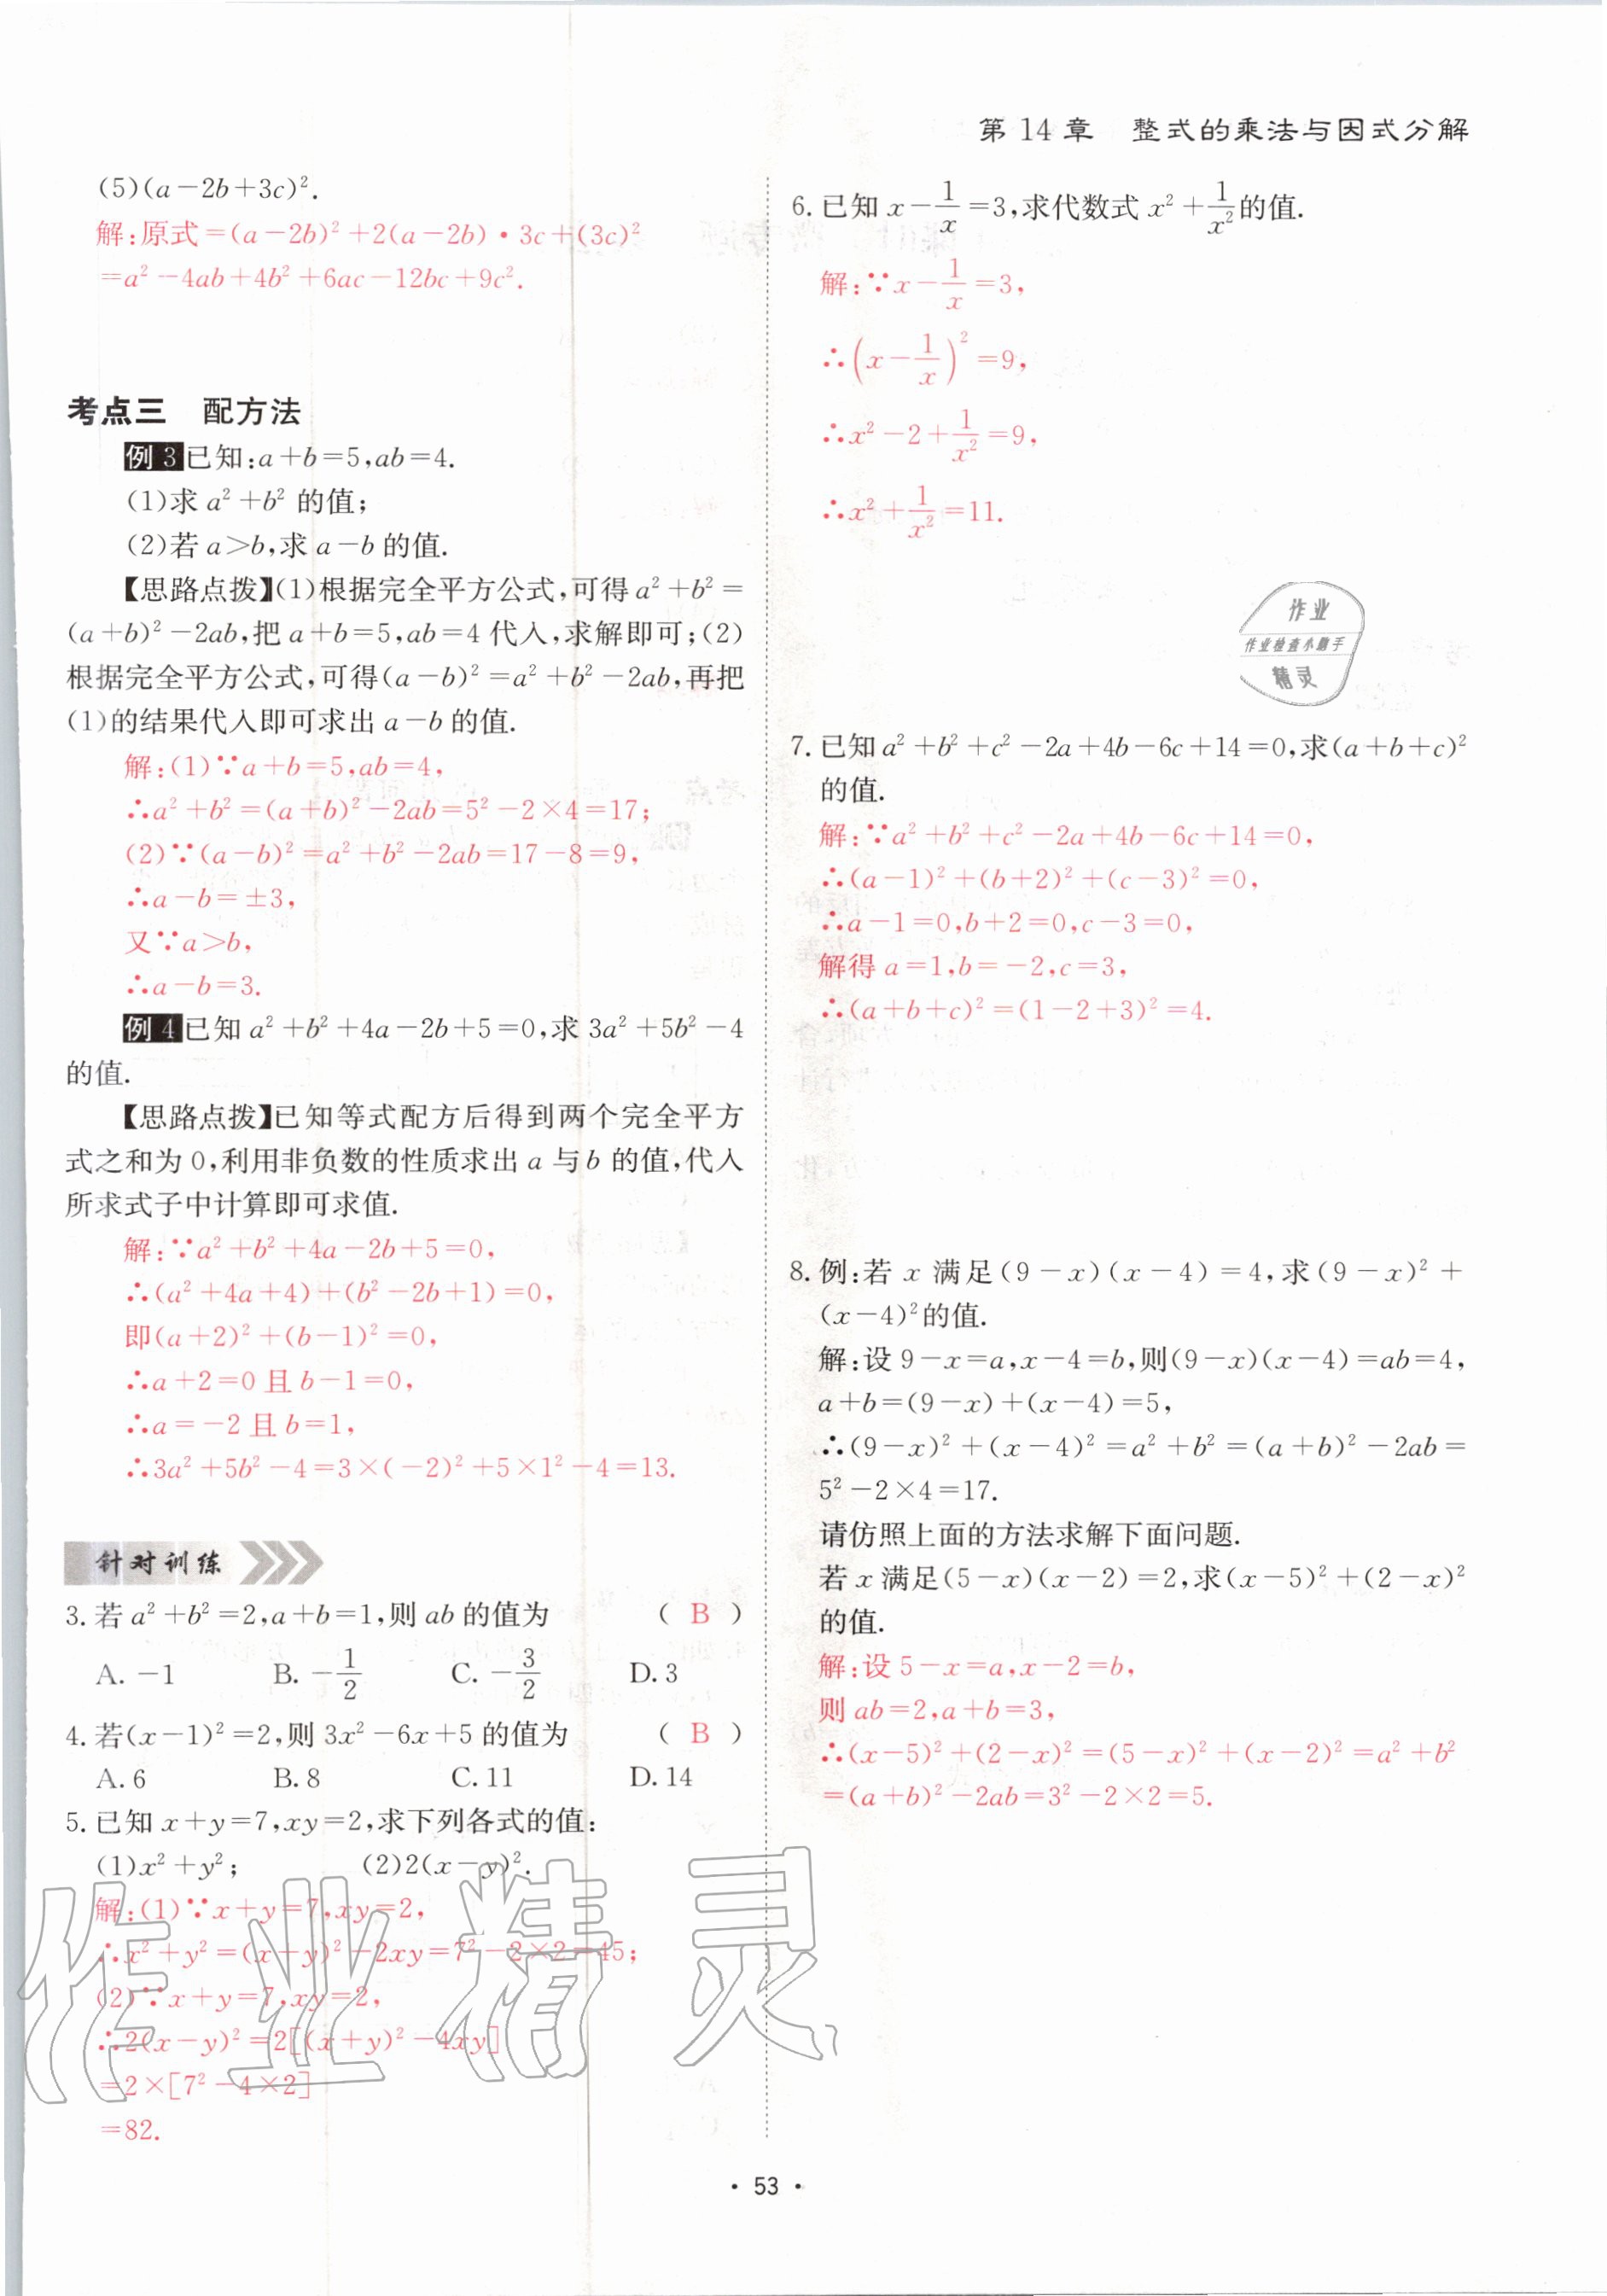 第 14 章　整式的乘法与因式分解
(5)(a－2b＋3c)².
解:原式＝(a－2b)²＋2(a－2b)·3c＋(3c)²
＝a²－4ab＋4b²＋6ac－12bc＋9c².
考点三　配方法
例 3 已知:a＋b＝5,ab＝4.
(1)求 a²＋b² 的值;
(2)若 a＞b,求 a－b 的值.
【思路点拨】(1)根据完全平方公式,可得 a²＋b²＝
(a＋b)²－2ab,把 a＋b＝5,ab＝4 代入,求解即可;(2)
根据完全平方公式,可得(a－b)²＝a²＋b²－2ab,再把
(1)的结果代入即可求出 a－b 的值.
解:(1)∵a＋b＝5,ab＝4,
∴a²＋b²＝(a＋b)²－2ab＝5²－2×4＝17;
(2)∵(a－b)²＝a²＋b²－2ab＝17－8＝9,
∴a－b＝±3,
又∵a＞b,
∴a－b＝3.
例 4 已知 a²＋b²＋4a－2b＋5＝0,求 3a²＋5b²－4
的值.
【思路点拨】已知等式配方后得到两个完全平方
式之和为 0,利用非负数的性质求出 a 与 b 的值,代入
所求式子中计算即可求值.
解:∵a²＋b²＋4a－2b＋5＝0,
∴(a²＋4a＋4)＋(b²－2b＋1)＝0,
即(a＋2)²＋(b－1)²＝0,
∴a＋2＝0 且 b－1＝0,
∴a＝－2 且 b＝1,
∴3a²＋5b²－4＝3×(－2)²＋5×1²－4＝13.
针对训练
3. 若 a²＋b²＝2,a＋b＝1,则 ab 的值为 ( B )
A. －1 B. －1/2 C. －3/2 D. 3
4. 若(x－1)²＝2,则 3x²－6x＋5 的值为 ( B )
A. 6 B. 8 C. 11 D. 14
5. 已知 x＋y＝7,xy＝2,求下列各式的值:
(1)x²＋y²; (2)2(x－y)².
解:(1)∵x＋y＝7,xy＝2,
∴x²＋y²＝(x＋y)²－2xy＝7²－2×2＝45;
(2)∵x＋y＝7,xy＝2,
∴2(x－y)²＝2[(x＋y)²－4xy]
＝2×[7²－4×2]
＝82.
6. 已知 x－1/x＝3,求代数式 x²＋1/x²的值.
解:∵x－1/x＝3,
∴(x－1/x)²＝9,
∴x²－2＋1/x²＝9,
∴x²＋1/x²＝11.
作业
作业检查小助手
精灵
7. 已知 a²＋b²＋c²－2a＋4b－6c＋14＝0,求(a＋b＋c)²
的值.
解:∵a²＋b²＋c²－2a＋4b－6c＋14＝0,
∴(a－1)²＋(b＋2)²＋(c－3)²＝0,
∴a－1＝0,b＋2＝0,c－3＝0,
解得 a＝1,b＝－2,c＝3,
∴(a＋b＋c)²＝(1－2＋3)²＝4.
8. 例:若 x 满足(9－x)(x－4)＝4,求(9－x)²＋
(x－4)²的值.
解:设 9－x＝a,x－4＝b,则(9－x)(x－4)＝ab＝4,
a＋b＝(9－x)＋(x－4)＝5,
∴(9－x)²＋(x－4)²＝a²＋b²＝(a＋b)²－2ab＝
5²－2×4＝17.
请仿照上面的方法求解下面问题.
若 x 满足(5－x)(x－2)＝2,求(x－5)²＋(2－x)²
的值.
解:设 5－x＝a,x－2＝b,
则 ab＝2,a＋b＝3,
∴(x－5)²＋(2－x)²＝(5－x)²＋(x－2)²＝a²＋b²
＝(a＋b)²－2ab＝3²－2×2＝5.
作业精灵
· 53 ·